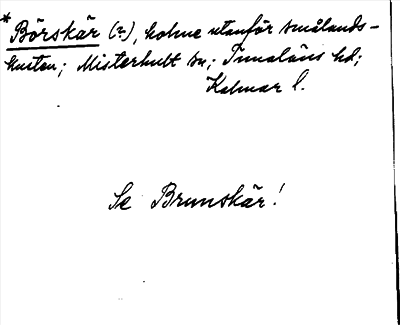 * Börskär (?), holme utanför smålands-
kusten; Misterhult sn.; Tunaläns hd;
Kalmar l.
Se Brunskär!